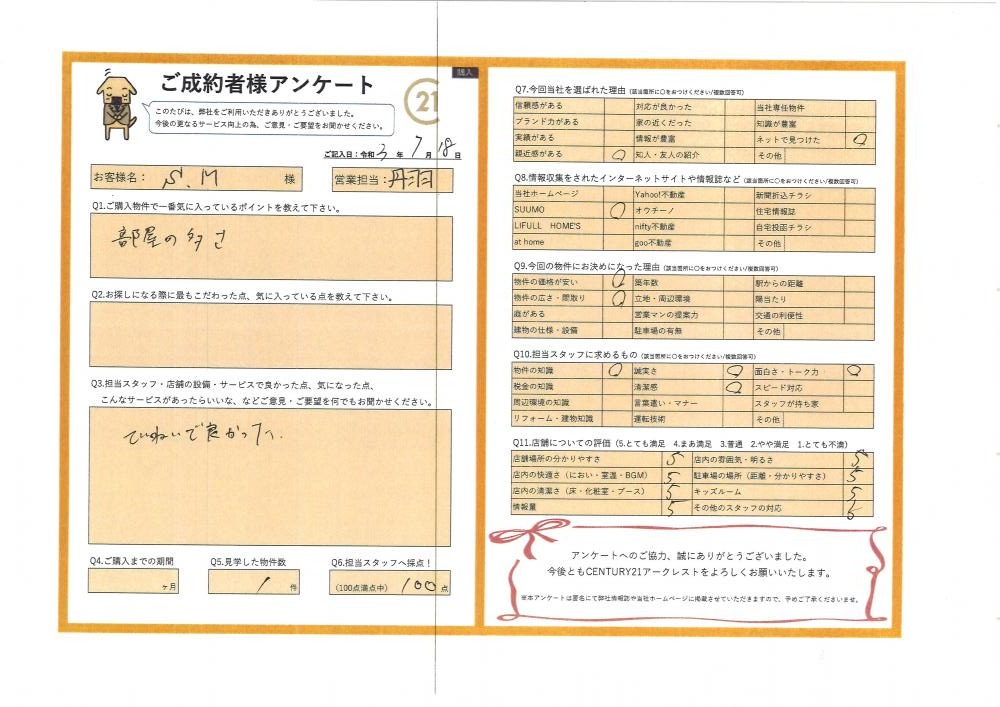 購入
ご成約者様アンケート
21
このたびは、弊社をご利用いただきありがとうございました。
今後の更なるサービス向上の為、ご意見・ご要望をお聞かせください。
ご記入日:令和 3 年 7 月 18 日
お客様名: S.M 様
営業担当: 丹羽
Q1.ご購入物件で一番気に入っているポイントを教えて下さい。
部屋の多さ
Q2.お探しになる際に最もこだわった点、気に入っている点を教えて下さい。
Q3.担当スタッフ・店舗の設備・サービスで良かった点、気になった点、
こんなサービスがあったらいいな、などご意見・ご要望を何でもお聞かせください。
ていねいで良かった.
Q4.ご購入までの期間
ヶ月
Q5.見学した物件数
1 件
Q6.担当スタッフへ採点!
(100点満点中) 100 点
Q7.今回当社を選ばれた理由(該当箇所に○をおつけください/複数回答可)
信頼感がある 対応が良かった 当社専任物件
ブランド力がある 家の近くだった 知識が豊富
実績がある 情報が豊富 ネットで見つけた ○
親近感がある ○ 知人・友人の紹介 その他
Q8.情報収集をされたインターネットサイトや情報誌など(該当箇所に○をおつけください/複数回答可)
当社ホームページ Yahoo!不動産 新聞折込チラシ
SUUMO ○ オウチーノ 住宅情報誌
LIFULL HOME'S nifty不動産 自宅投函チラシ
at home goo不動産 その他
Q9.今回の物件にお決めになった理由(該当箇所に○をおつけください/複数回答可)
物件の価格が安い ○ 築年数 駅からの距離
物件の広さ・間取り ○ 立地・周辺環境 陽当たり
庭がある 営業マンの提案力 交通の利便性
建物の仕様・設備 駐車場の有無 その他
Q10.担当スタッフに求めるもの(該当箇所に○をおつけください/複数回答可)
物件の知識 ○ 誠実さ ○ 面白さ・トーク力 ○
税金の知識 清潔感 ○ スピード対応
周辺環境の知識 言葉遣い・マナー スタッフが持ち家
リフォーム・建物知識 運転技術 その他
Q11.店舗についての評価(5.とても満足 4.まあ満足 3.普通 2.やや満足 1.とても不満)
店舗場所の分かりやすさ 5 店内の雰囲気・明るさ 5
店内の快適さ(におい・室温・BGM) 5 駐車場の場所(距離・分かりやすさ) 5
店内の清潔さ(床・化粧室・ブース) 5 キッズルーム 5
情報量 5 その他のスタッフの対応 5
アンケートへのご協力、誠にありがとうございました。
今後ともCENTURY21アークレストをよろしくお願いいたします。
※本アンケートは匿名にて弊社情報誌や当社ホームページに掲載させていただきますので、予めご了承くださいませ。